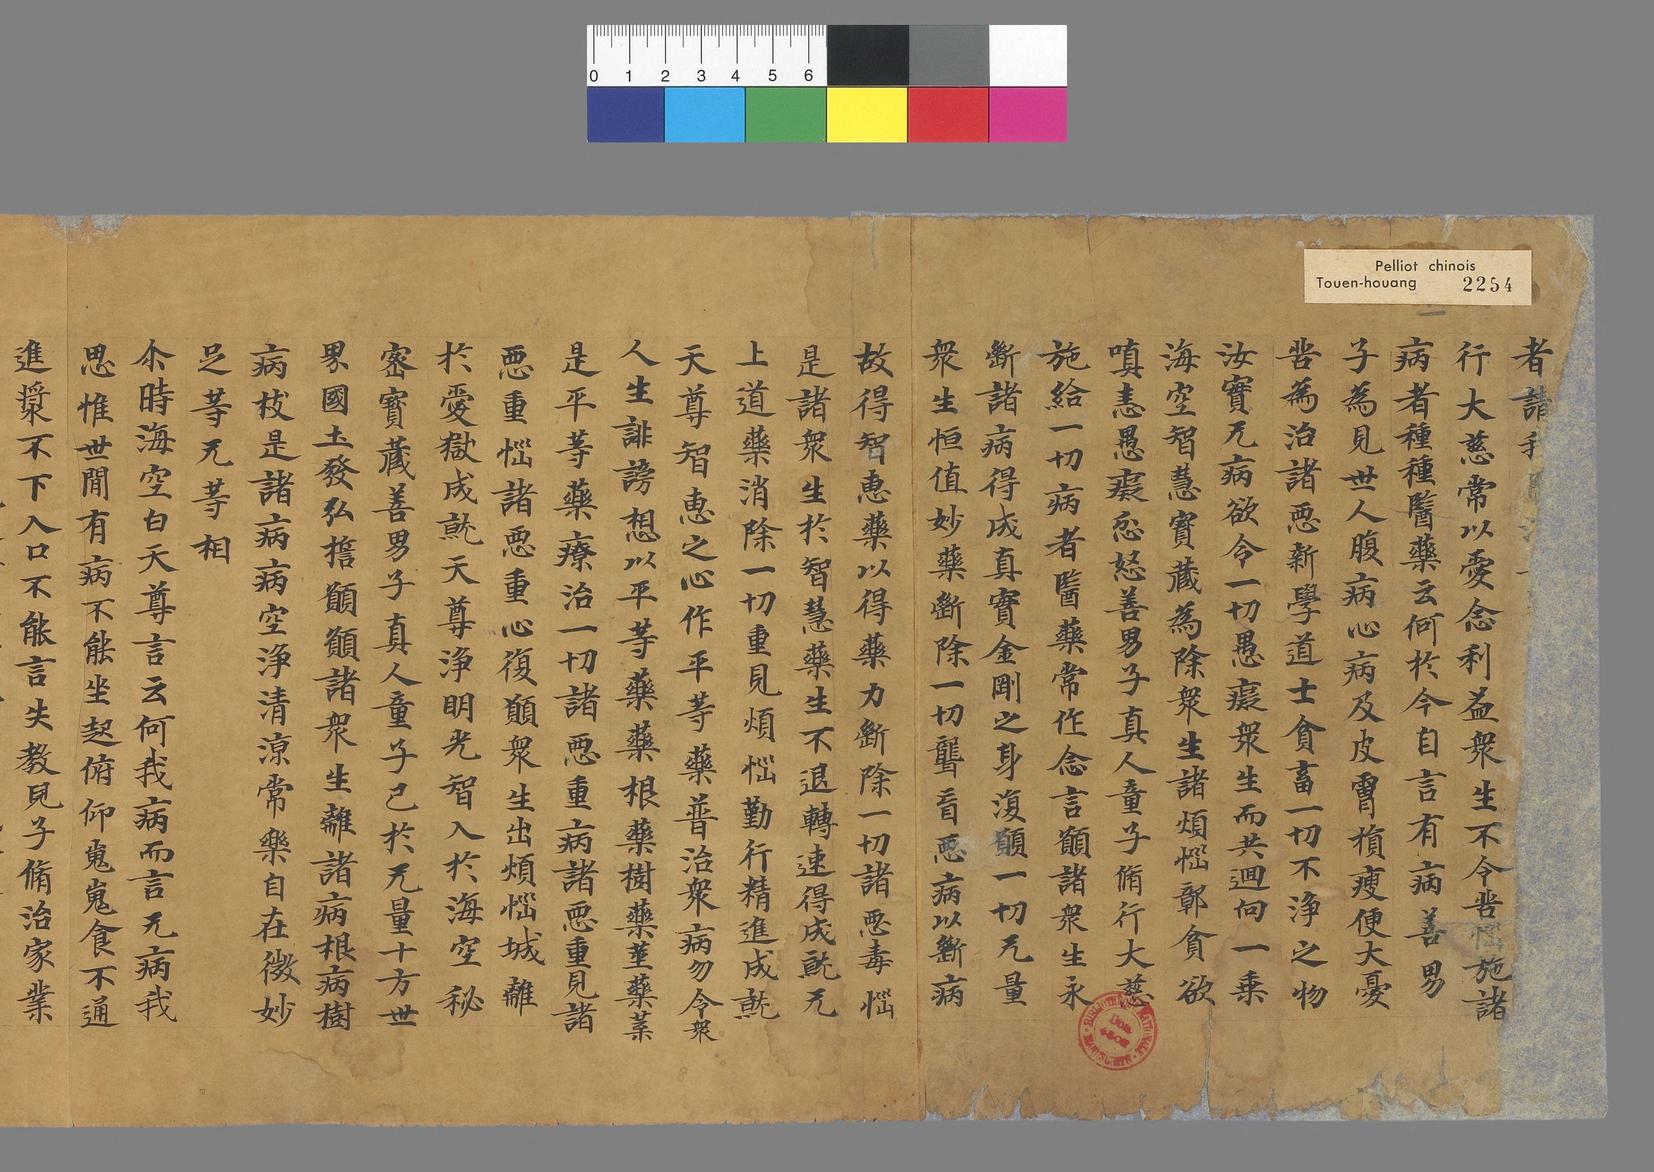 Pelliot chinois
Touen-houang 2254
0 1 2 3 4 5 6
者請
行大慈常以愛念利益衆生不令甞惱施諸
病者種種醫藥云何於今自言有病善男
子為見世人腹病心病及皮膚損瘦便大憂
甞為治諸惡新學道士貪畜一切不淨之物
汝寶无病欲令一切愚癡衆生而共迴向一乗
海空智慧寶藏為除衆生諸煩惱鄣貪欲
嗔恚愚癡忿怒善男子真人童子脩行大慈
施給一切病者醫藥常作念言願諸衆生永
斷諸病得成真實金剛之身復願一切无量
衆生恒值妙藥斷除一切聾盲惡病以斷病
故得智惠藥以得藥力斷除一切諸惡毒惱
是諸衆生於智慧藥生不退轉速得成就无
上道藥消除一切重見煩惱勤行精進成就
天尊智惠之心作平等藥普治衆病勿令衆
人生誹謗想以平等藥藥根藥樹藥莖藥菓
是平等藥療治一切諸惡重病諸惡重見諸
惡重惱諸惡重心復願衆生出煩惱城離
於愛獄成就天尊淨明光智入於海空秘
密寶藏善男子真人童子已於无量十方世
界國土發弘擔願願諸衆生離諸病根病樹
病枝是諸病病空淨清涼常樂自在微妙
足等无等相
尒時海空白天尊言云何我病而言无病我
思惟世間有病不能坐起俯仰嵬嵬食不通
進漿不下入口不能言失教見子脩治家業